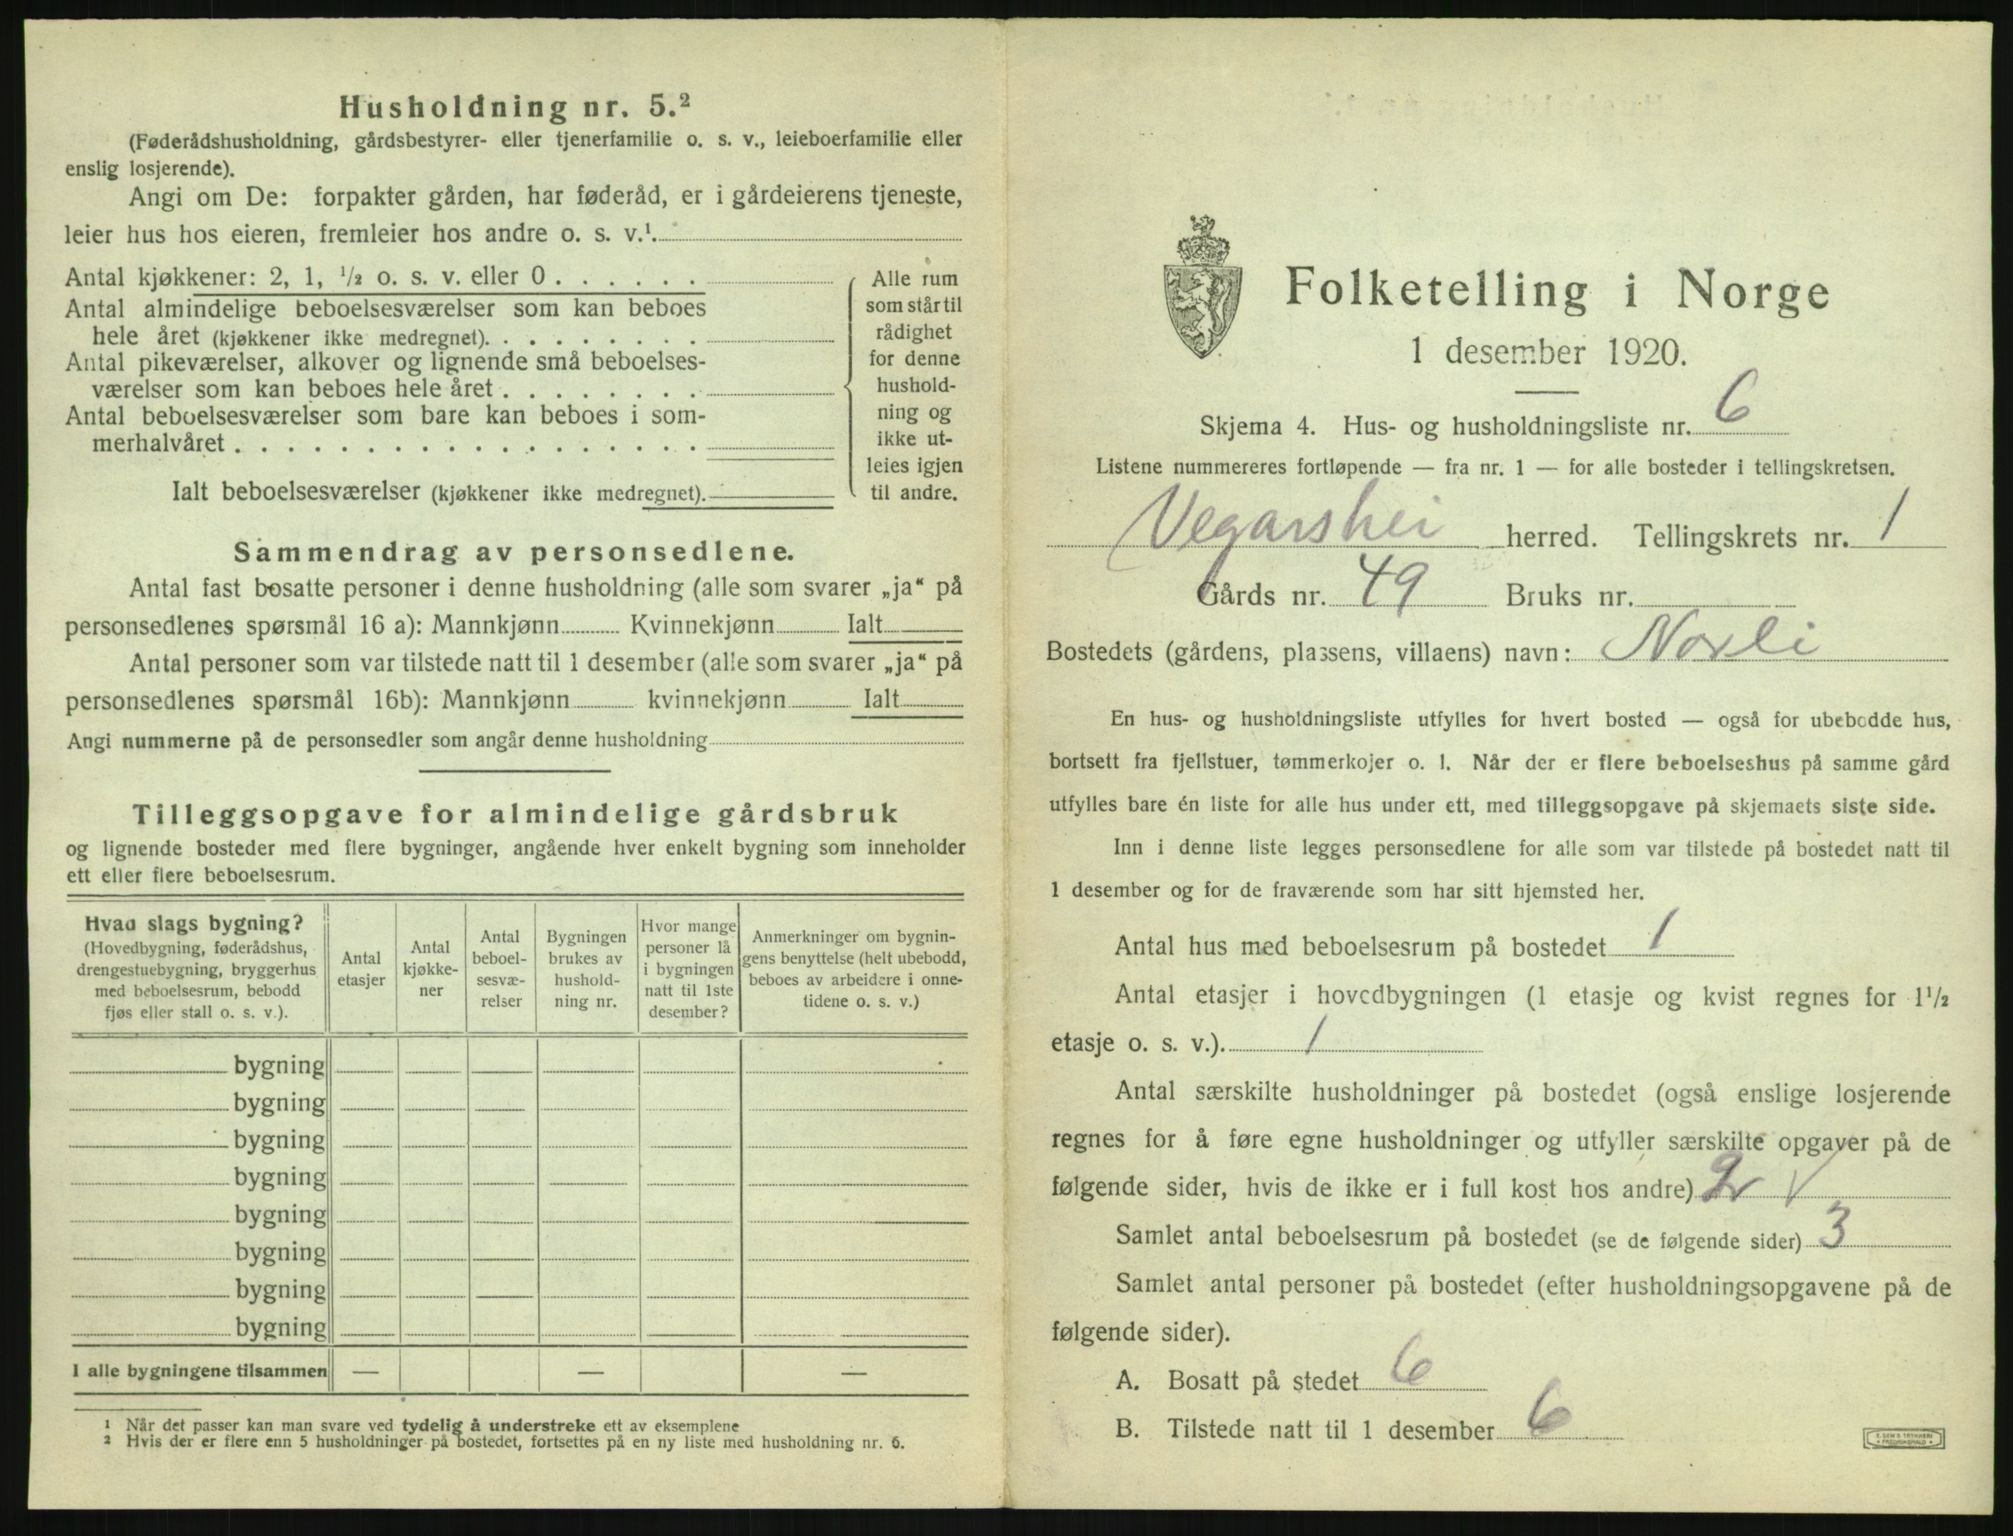 Husholdning nr. 5.²
(Føderådshusholdning, gårdsbestyrer- eller tjenerfamilie o. s. v., leieboerfamilie eller
enslig losjerende).
Angi om De: forpakter gården, har føderåd, er i gårdeierens tjeneste,
leier hus hos eieren, fremleier hos andre o. s. v.¹.
Antal kjøkkener: 2, 1, ½ o. s. v. eller 0 . . . . . .
Antal almindelige beboelsesværelser som kan beboes
hele året (kjøkkener ikke medregnet). . . . . . . . .
Antal pikeværelser, alkover og lignende små beboelses-
værelser som kan beboes hele året . . . . . . . .
Antal beboelsesværelser som bare kan beboes i som-
merhalvåret . . . . . . . . . . . . . . . . . .
Ialt beboelsesværelser (kjøkkener ikke medregnet).
Alle rum
som står til
rådighet
for denne
hushold-
ning og
ikke ut-
leies igjen
til andre.
Sammendrag av personsedlene.
Antal fast bosatte personer i denne husholdning (alle som svarer „ja“ på
personsedlenes spørsmål 16 a): Mannkjønn Kvinnekjønn Ialt
Antal personer som var tilstede natt til 1 desember (alle som svarer „ja“ på
personsedlenes spørsmål 16b): Mannkjønn kvinnekjønn Ialt
Angi nummerne på de personsedler som angår denne husholdning
Tilleggsopgave for almindelige gårdsbruk
og lignende bosteder med flere bygninger, angående hver enkelt bygning som inneholder
ett eller flere beboelsesrum.
Hvad slags bygning?
(Hovedbygning, føderådshus,
drengestuebygning, bryggerhus
med beboelsesrum, bebodd
fjøs eller stall o. s. v.).
Antal
etasjer
Antal
kjøkke-
ner
Antal
beboel-
sesvæ-
relser
Bygningen
brukes av
hushold-
ning nr.
Hvor mange
personer lå
i bygningen
natt til 1ste
desember?
Anmerkninger om bygnin-
gens benyttelse (helt ubebodd,
beboes av arbeidere i onne-
tidene o. s. v.)
bygning
bygning
bygning
bygning
bygning
bygning
bygning
bygning
I alle bygningene tilsammen — — —
¹ Når det passer kan man svare ved tydelig å understreke ett av eksemplene
² Hvis der er flere enn 5 husholdninger på bostedet, fortsettes på en ny liste med husholdning nr. 6.
Folketelling i Norge
1 desember 1920.
Skjema 4. Hus- og husholdningsliste nr. 6
Listene nummereres fortløpende — fra nr. 1 — for alle bosteder i tellingskretsen.
Vegarshei herred. Tellingskrets nr. 1
Gårds nr. 49 Bruks nr.
Bostedets (gårdens, plassens, villaens) navn: Norli
En hus- og husholdningsliste utfylles for hvert bosted — også for ubebodde hus,
bortsett fra fjellstuer, tømmerkojer o. l. Når der er flere beboelseshus på samme gård
utfylles bare én liste for alle hus under ett, med tilleggsopgave på skjemaets siste side.
Inn i denne liste legges personsedlene for alle som var tilstede på bostedet natt til
1 desember og for de fraværende som har sitt hjemsted her.
Antal hus med beboelsesrum på bostedet 1
Antal etasjer i hovedbygningen (1 etasje og kvist regnes for 1½
etasje o. s. v.). 1
Antal særskilte husholdninger på bostedet (også enslige losjerende
regnes for å føre egne husholdninger og utfyller særskilte opgaver på de
følgende sider, hvis de ikke er i full kost hos andre) 2 √
Samlet antal beboelsesrum på bostedet (se de følgende sider) 3
Samlet antal personer på bostedet (efter husholdningsopgavene på de
følgende sider).
A. Bosatt på stedet 6
B. Tilstede natt til 1 desember 6